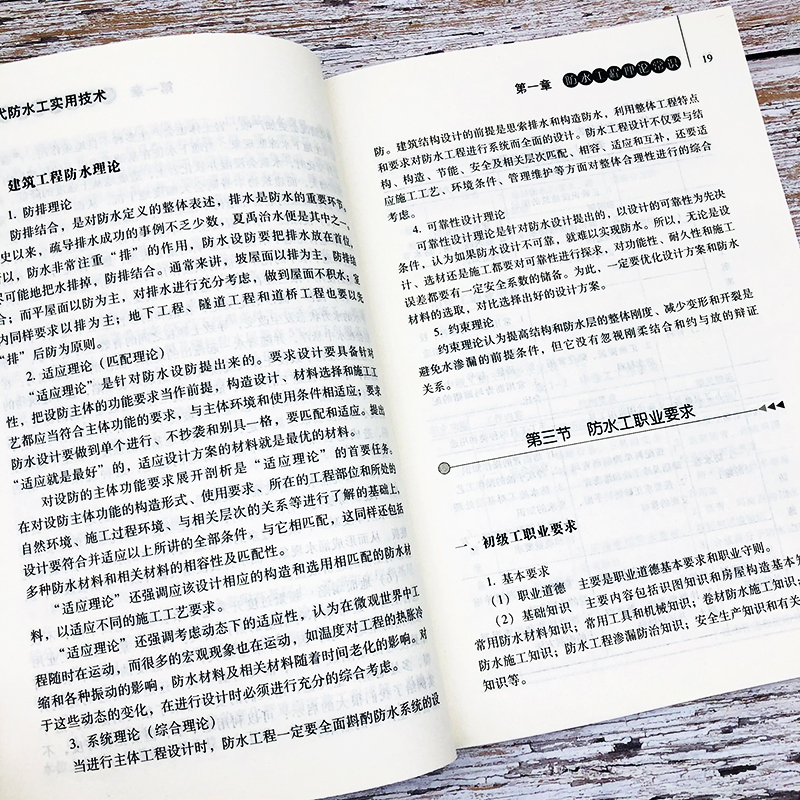 代防水工实用技术
建筑工程防水理论
1. 防排理论
防排结合，是对防水定义的整体表述，排水是防水的重要环节。
史以来，疏导排水成功的事例不乏少数，夏禹治水便是其中之一，
以，防水非常注重“排”的作用，防水设防要把排水放在首位，
尽可能地把水排掉，防排结合。通常来讲，坡屋面以排为主，防排结
合；而平屋面以防为主，对排水进行充分考虑，做到屋面不积水；室
内同样要求以排为主；地下工程、隧道工程和道桥工程也要以先
“排”后防为原则。
2. 适应理论（匹配理论）
“适应理论”是针对防水设防提出来的。要求设计要具备针对
性，把设防主体的功能要求当作前提，构造设计、材料选择和施工工
艺都应当符合主体功能的要求，与主体环境和使用条件相适应；要求
防水设计要做到单个进行、不抄袭和别具一格，要匹配和适应。提出
“适应就是最好”的，适应设计方案的材料就是最优的材料。
对设防的主体功能要求展开剖析是“适应理论”的首要任务。
在对设防主体功能的构造形式、使用要求、所在的工程部位和所处的
自然环境、施工过程环境、与相关层次的关系等进行了解的基础上，
设计要符合并适应以上所讲的全部条件，与它相匹配，这同样还包括
多种防水材料和相关材料的相容性及匹配性。
“适应理论”还强调应该设计相应的构造和选用相匹配的防水材
料，以适应不同的施工工艺要求。
“适应理论”还强调考虑动态下的适应性，认为在微观世界中工
程随时在运动，而很多的宏观现象也在运动，如温度对工程的热胀冷
缩和各种振动的影响，防水材料及相关材料随着时间老化的影响。对
于这些动态的变化，在进行设计时必须进行充分的综合考虑。
3. 系统理论（综合理论）
当进行主体工程设计时，防水工程一定要全面斟酌防水系统的设
第一章 防水工程理论常识 19
防。建筑结构设计的前提是思索排水和构造防水，利用整体工程特点
和要求对防水工程进行系统而全面的设计。防水工程设计不仅要与结
构、构造、节能、安全及相关层次匹配、相容、适应和互补，还要适
应施工工艺、环境条件、管理维护等方面对整体合理性进行的综合
考虑。
4. 可靠性设计理论
可靠性设计理论是针对防水设计提出的，以设计的可靠性为先决
条件，认为如果防水设计不可靠，就难以实现防水。所以，无论是设
计、选材还是施工都要对可靠性进行探求，对功能性、耐久性和施工
误差都要有一定安全系数的储备。为此，一定要优化设计方案和防水
材料的选取，对比选择出好的设计方案。
5. 约束理论
约束理论认为提高结构和防水层的整体刚度、减少变形和开裂是
避免水渗漏的前提条件，但它没有忽视刚柔结合和约与放的辩证
关系。
第三节 防水工职业要求
一、初级工职业要求
1. 基本要求
（1）职业道德 主要是职业道德基本要求和职业守则。
（2）基础知识 主要内容包括识图知识和房屋构造基本知
常用防水材料知识；常用工具和机械知识；卷材防水施工知识；
防水施工知识；防水工程渗漏防治知识；安全生产知识和有关
知识等。